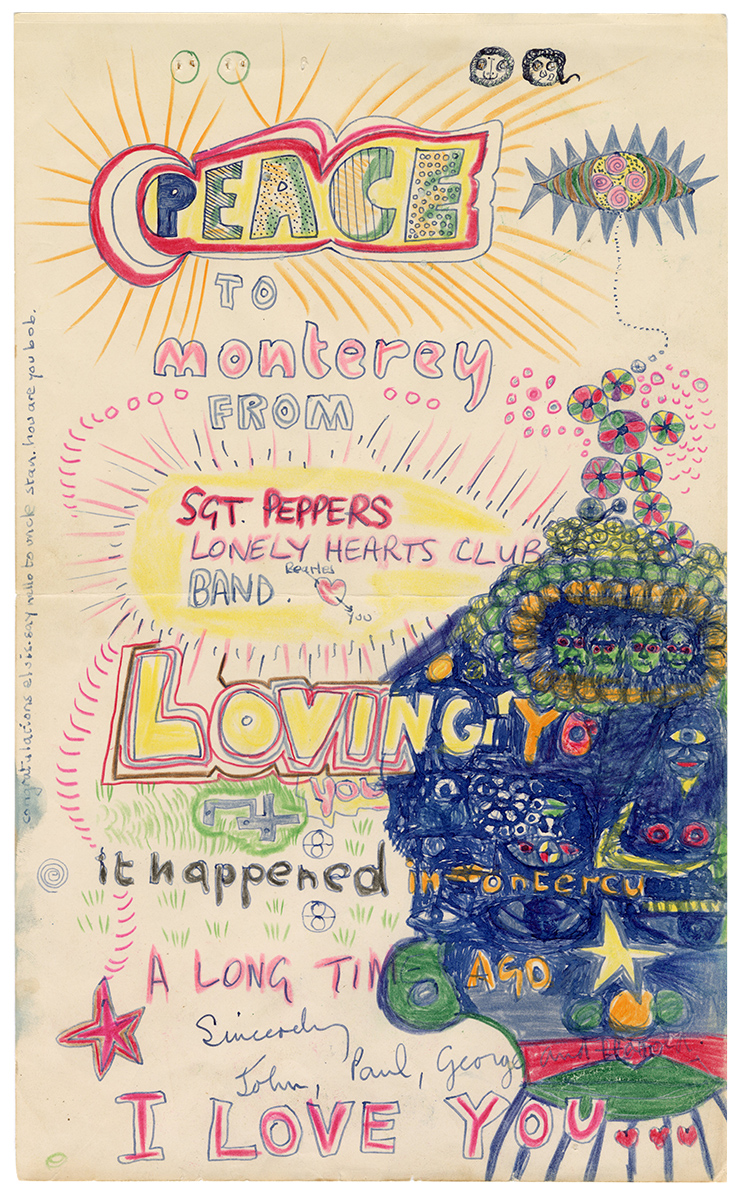 PEACE
TO
monterey
FROM
SGT. PEPPERS
LONELY HEARTS CLUB
BAND.
Beatles
you
LOVING YO
you
it happened in monterey
A LONG TIME AGO
Sincerely
John, Paul, George and
I LOVE YOU...
congratulations elvis. say hello to uncle stan. how are you bob.